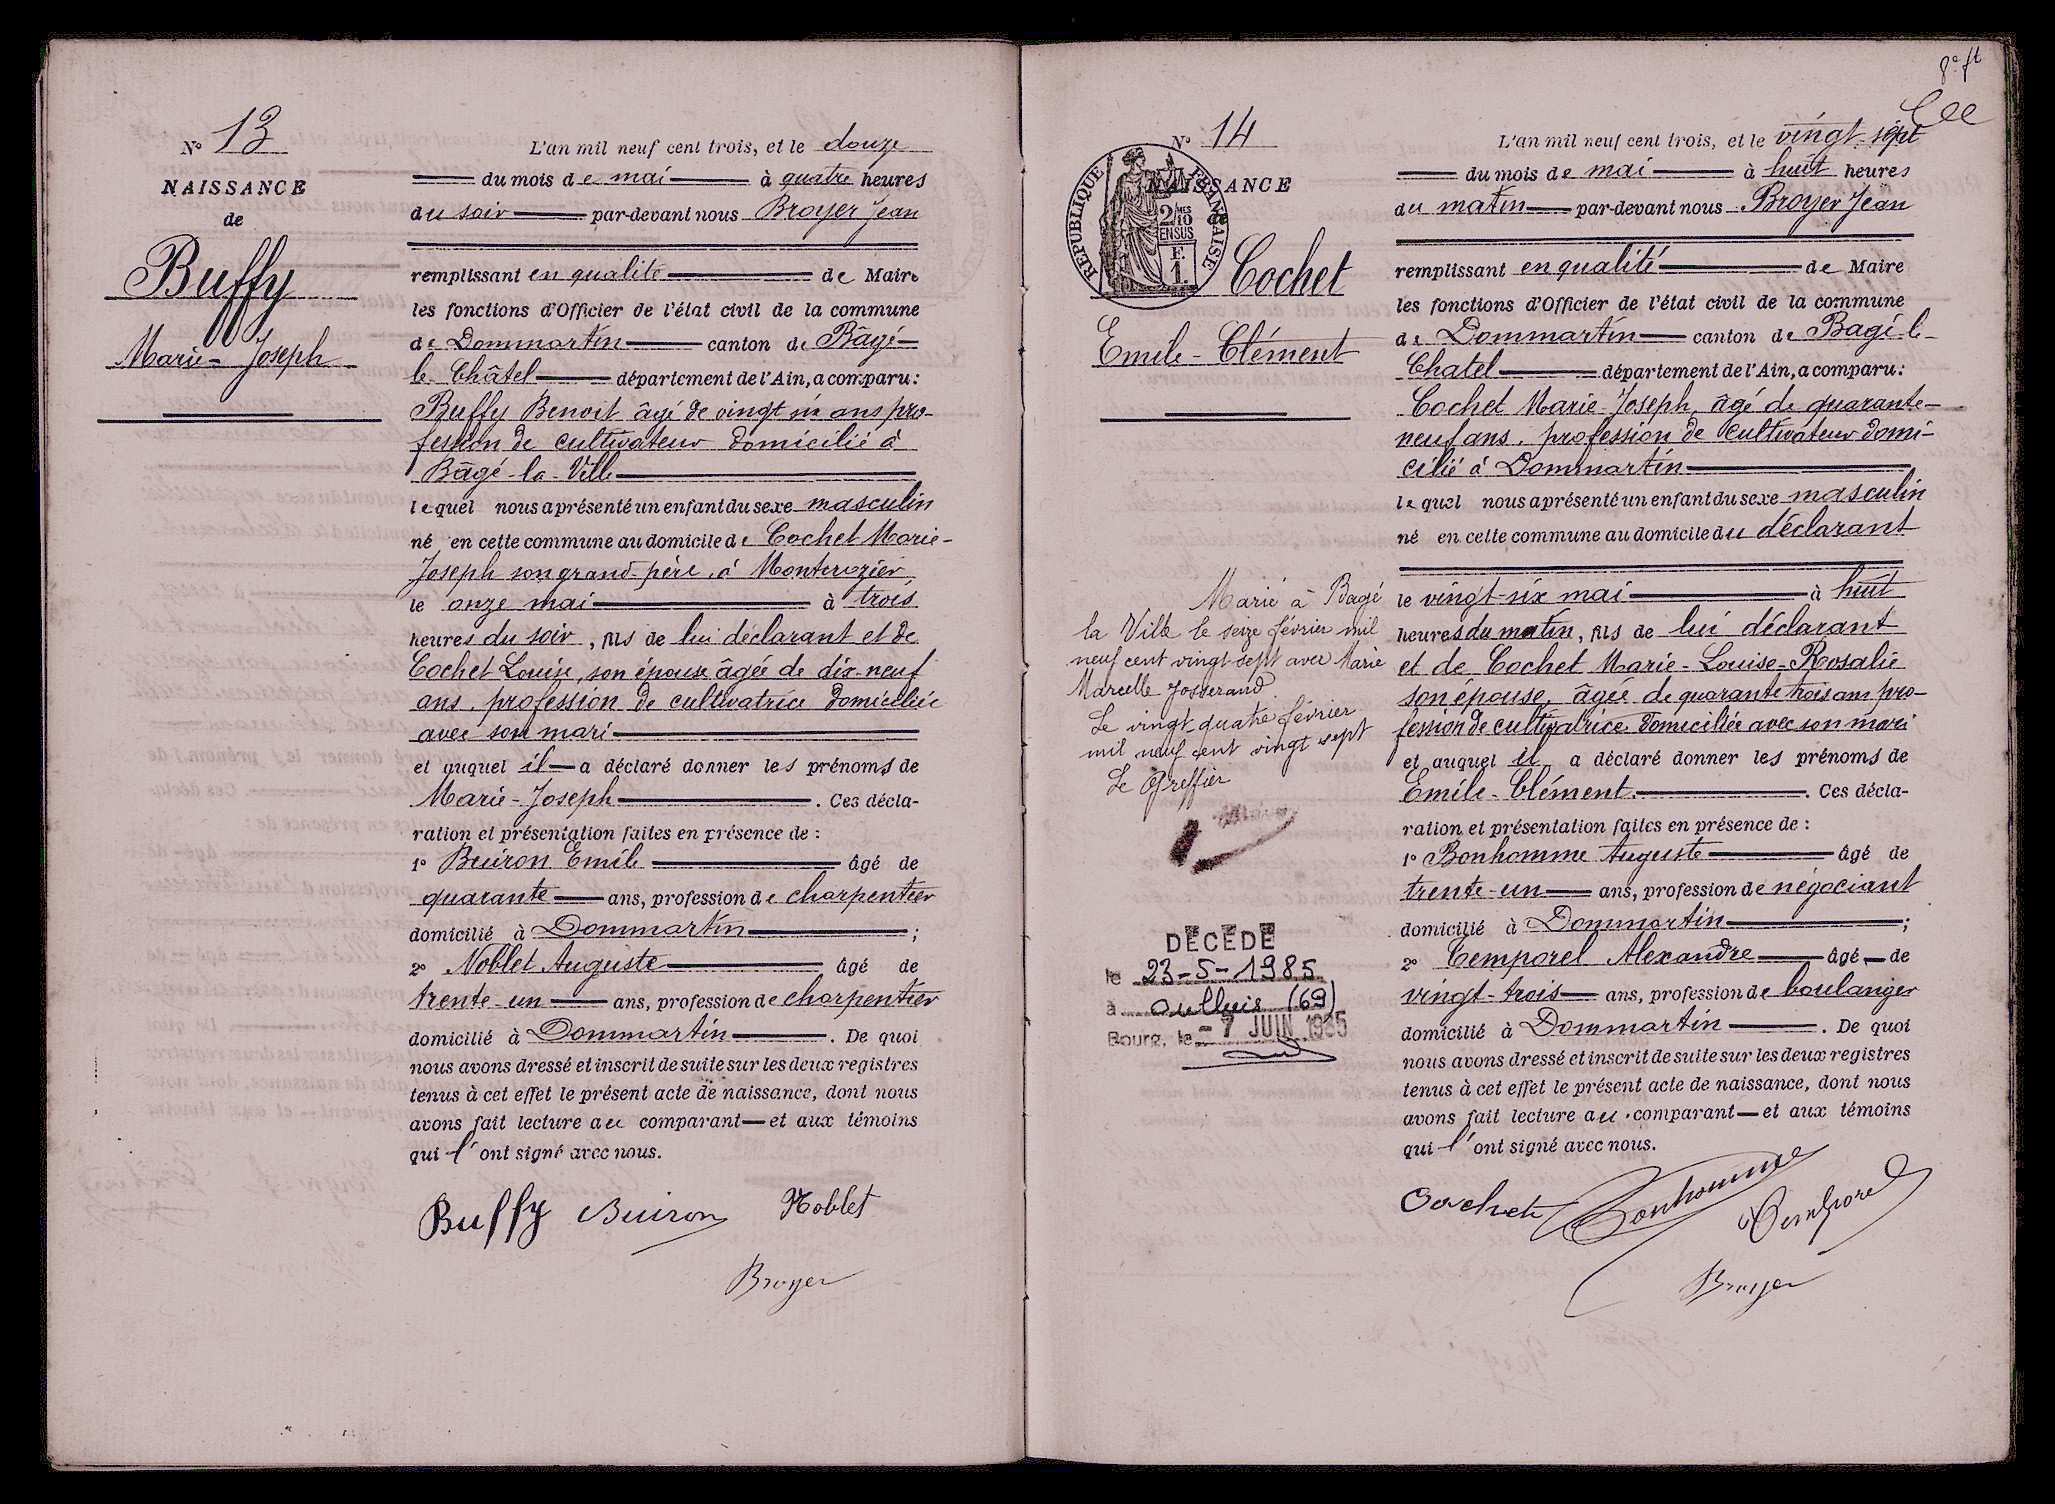 Nº 13
NAISSANCE
de
Buffy
Marie-Joseph
L'an mil neuf cent trois, et le douze
du mois de mai à quatre heures
du soir par-devant nous Broyer Jean
remplissant en qualité de Maire
les fonctions d'Officier de l'état civil de la commune
de Dommartin canton de Bâgé-
le Châtel département de l'Ain, a comparu:
Buffy Benoit âgé de vingt six ans pro-
fession de cultivateur domicilié à
Bâgé-la-Ville
lequel nous a présenté un enfant du sexe masculin
né en cette commune au domicile de Cochet Marie-
Joseph son grand-père, à Monterozier,
le onze mai à trois
heures du soir, fils de lui déclarant et de
Cochet Louise, son épouse âgée de dix-neuf
ans, profession de cultivatrice domiciliée
avec son mari
et auquel il a déclaré donner les prénoms de
Marie-Joseph. Ces décla-
ration et présentation faites en présence de :
1º Buiron Emile âgé de
quarante ans, profession de charpentier
domicilié à Dommartin ;
2º Noblet Auguste âgé de
trente-un ans, profession de charpentier
domicilié à Dommartin. De quoi
nous avons dressé et inscrit de suite sur les deux registres
tenus à cet effet le présent acte de naissance, dont nous
avons fait lecture au comparant et aux témoins
qui l'ont signé avec nous.
Buffy Buiron Noblet
Broyer
8e ft
Nº 14
NAISSANCE
de
RÉPUBLIQUE FRANÇAISE
2/10 MES
EN SUS
F.
1.
Cochet
Emile-Clément
Marié à Bagé
la Ville le seize février mil
neuf cent vingt sept avec Marie
Marcelle Josserand.
Le vingt quatre février
mil neuf cent vingt sept
Le Greffier
DÉCÉDÉ
le 23-5-1985
à Oullins (69)
Bourg, le - 7 JUIN 1985
L'an mil neuf cent trois, et le vingt-sept
du mois de mai à huit heures
du matin par-devant nous Broyer Jean
remplissant en qualité de Maire
les fonctions d'Officier de l'état civil de la commune
de Dommartin canton de Bagé-le-
Chatel département de l'Ain, a comparu:
Cochet Marie-Joseph, âgé de quarante-
neuf ans, profession de cultivateur domi-
cilié à Dommartin
lequel nous a présenté un enfant du sexe masculin
né en cette commune au domicile du déclarant
le vingt-six mai à huit
heures du matin, fils de lui déclarant
et de Cochet Marie-Louise-Rosalie
son épouse, âgée de quarante trois ans pro-
fession de cultivatrice domiciliée avec son mari
et auquel il a déclaré donner les prénoms de
Emile-Clément. Ces décla-
ration et présentation faites en présence de :
1º Bonhomme Auguste âgé de
trente-un ans, profession de négociant
domicilié à Dommartin ;
2º Temporel Alexandre âgé de
vingt-trois ans, profession de boulanger
domicilié à Dommartin. De quoi
nous avons dressé et inscrit de suite sur les deux registres
tenus à cet effet le présent acte de naissance, dont nous
avons fait lecture au comparant et aux témoins
qui l'ont signé avec nous.
Cochet Bonhomme Temporel
Broyer